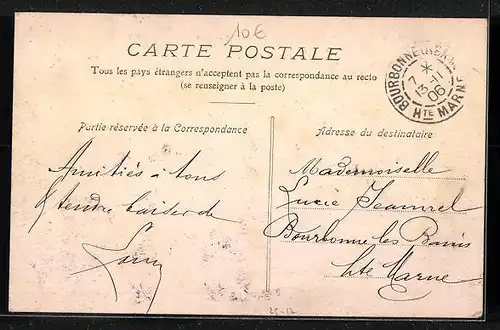 10€
CARTE POSTALE
Tous les pays étrangers n'acceptent pas la correspondance au recto
(se renseigner à la poste)
BOURBONNE-LES-BAINS
7 *
13-11
06
HTE MARNE
Partie réservée à la Correspondance
Adresse du destinataire
Amitiés à tous
& tendre baiser de
Mademoiselle
Lucie Jeannel
Bourbonne les Bains
Hte Marne